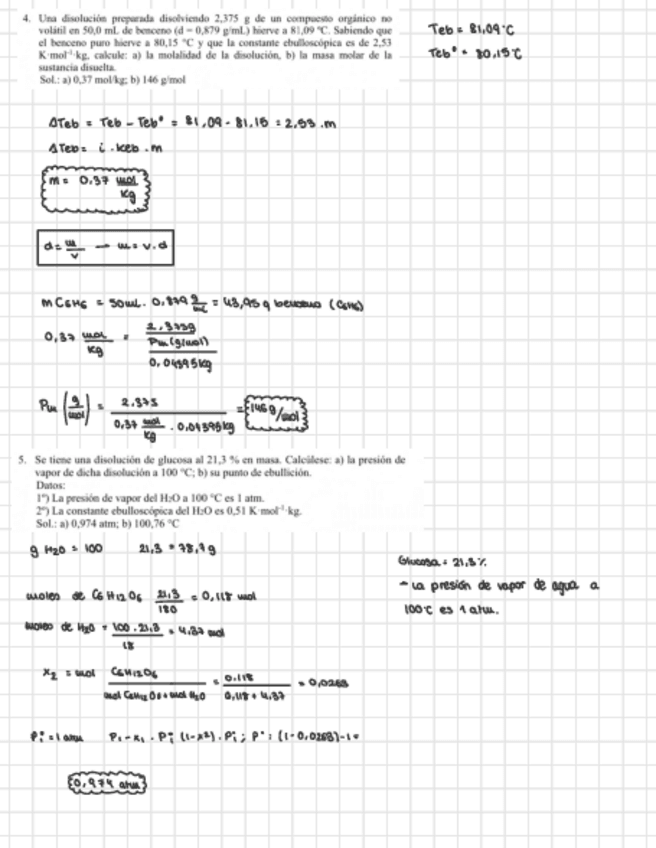 4. Una disolución preparada disolviendo 2,375 g de un compuesto orgánico no
volátil en 50,0 mL de benceno (d = 0,879 g/mL) hierve a 81,09 °C. Sabiendo que
el benceno puro hierve a 80,15 °C y que la constante ebulloscópica es de 2,53
K·mol⁻¹·kg, calcule: a) la molalidad de la disolución, b) la masa molar de la
sustancia disuelta.
Sol.: a) 0,37 mol/kg; b) 146 g/mol
Teb = 81,09 °C
Teb° = 80,15 °C
ΔTeb = Teb - Teb° = 81,09 - 81,15 = 2,53 . m
ΔTeb = i . keb . m
m = 0.37 mol/kg
d = m/v → m = v.d
m C6H6 = 50 mL . 0,879 g/mL = 43,95 g benceno (C6H6)
0,37 mol/kg = 2,375g / Pm (g/mol) / 0,04395 kg
Pm (g/mol) = 2.375 / 0,37 mol/kg . 0,04395 kg = 146 g/mol
5. Se tiene una disolución de glucosa al 21,3 % en masa. Calcúlese: a) la presión de
vapor de dicha disolución a 100 °C; b) su punto de ebullición.
Datos:
1º) La presión de vapor del H₂O a 100 °C es 1 atm.
2º) La constante ebulloscópica del H₂O es 0,51 K·mol⁻¹·kg.
Sol.: a) 0,974 atm; b) 100,76 °C
g H2O = 100 21,3 = 78,7 g
Glucosa = 21,3 %
- La presión de vapor de agua a
100°C es 1 atm.
moles de C6H12O6 21,3/180 = 0,118 mol
moles de H2O = 100 - 21,3 / 18 = 4,37 mol
x2 = mol C6H12O6 / mol C6H12O6 + mol H2O = 0.118 / 0,118 + 4,37 = 0,0263
P1° = 1 atm P1 = x1 . P1° (1-x2) . P1° ; P° : (1-0,0263)-1 =
0,974 atm